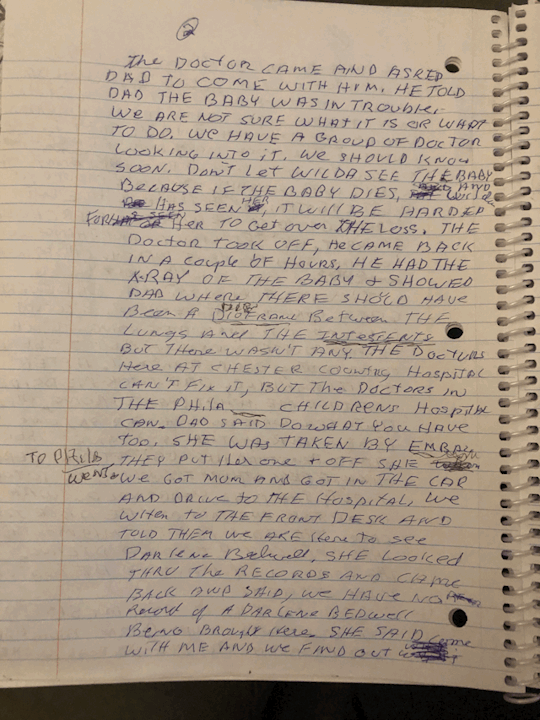 2
The DOCTOR CAME AND ASKED
DAD TO COME WITH HIM. HE TOLD
DAD THE BABY WAS IN TROUBLE.
WE ARE NOT SURE WHAT IT IS OR WHAT
TO DO. WE HAVE A GROUP OF DOCTOR
LOOKING INTO IT. WE SHOULD KNOW
SOON. DON'T LET WILDA SEE THE BABY
BECAUSE IF THE BABY DIES, AND
HAS SEEN HER, IT WILL BE HARDER
FOR HER TO GET OVER THE LOSS. THE
DOCTOR TOOK OFF, HE CAME BACK
IN A COUPLE OF HOURS, HE HAD THE
X-RAY OF THE BABY & SHOWED
DAD WHERE THERE SHOULD HAVE
BEEN A BETWEEN THE
LUNGS AND THE INTESTENTS
BUT THERE WASN'T ANY THE DOCTORS
HERE AT CHESTER COUNTY HOSPITAL
CAN'T FIX IT, BUT THE DOCTORS IN
THE PHILA CHILDRENS HOSPITAL
CAN. DAD SAID DO WHAT YOU HAVE
TOO. SHE WAS TAKEN BY
THEY PUT HER ONE & OFF SHE
TO Phila
WENT WE GOT MOM AND GOT IN THE CAR
AND DRIVE TO THE HOSPITAL, WE
WHEN TO THE FRONT DESK AND
TOLD THEM WE ARE HERE TO SEE
DARLENE BEDWELL, SHE LOOKED
THRU THE RECORDS AND CAME
BACK AND SAID, WE HAVE NO
RECORD OF A DARLENE BEDWELL
BEING BROUGHT HERE. SHE SAID COME
WITH ME AND WE FIND OUT